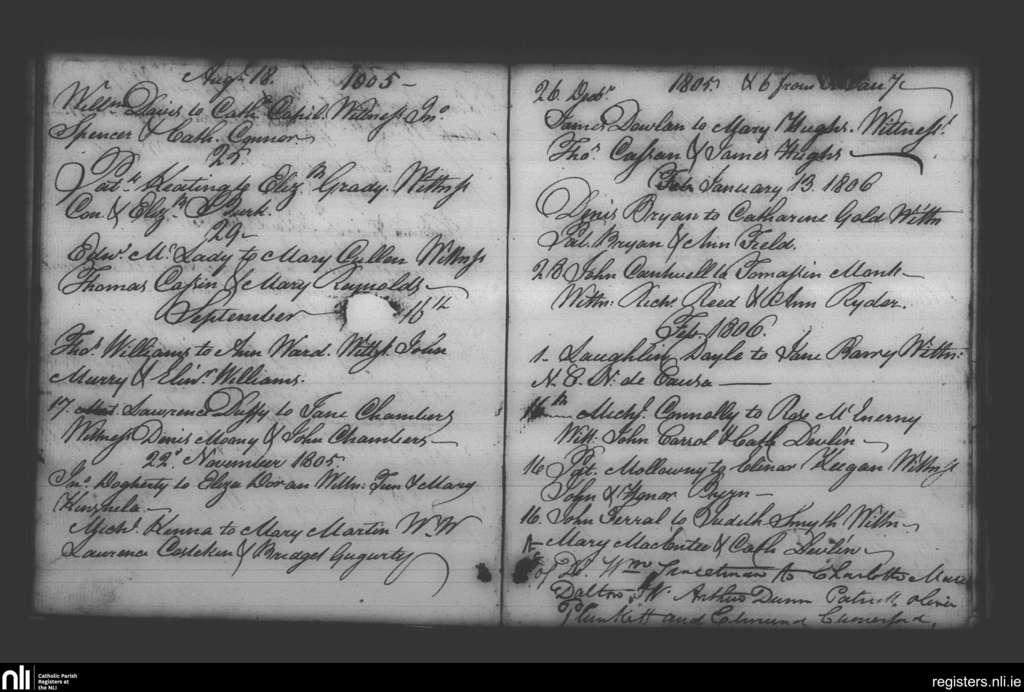 Augt. 18. 1805 -
Willm Davis to Cath. Cahil. Witness Jno.
Spencer & Cath. Connor
25
Patk. Keating to Elizth. Grady. Witness
Con & Elizth. Burk.
29
Edwd. Mc Lady to Mary Cullen Witness
Thomas Casin & Mary Raynolds
September 16th
Thos. Williams to Ann Ward. Witss. John
Murry & Elinr. Williams.
17. Lawrence Duffy to Jane Chambers
Witness Denis Moany & John Chambers
22d. November 1805.
Jno. Dogherty to Eliza Doran Witn: & Mary
Kinshela
Michl. Kenna to Mary Martin W.W
Lawrence & Bridget Gugurty
26. Octbr. 1805. & 6 from
James Dowlan to Mary Hughs. Witness.
Thos. Cassan & James Hughs
January 13. 1806
Denis Bryan to Catharine Gold Witn
Pat. Bryan & Ann Field.
28 John Cantwell to Tomasin Monk
Witn: Richd. Reed & Ann Ryder.
Feb. 1806.
1- Laughlin Doyle to Jane Barry Witn:
N. C. N. de Causa
Michl. Connolly to Rose Mc Inerny
Witt. John Carrol & Cath Devlin
16 Pat. Mollowny to Elinor Keegan Witness
John & Honor Bryan
16. John Ferral to Judith Smyth Witn
Mary MacEntee & Cath Devlin
Wm to Charlotte
Dalton Arthur Dunn Patrick Oliver
Plunkett and Edmund Comerford,
nli
Catholic Parish
Registers at
the NLI
registers.nli.ie